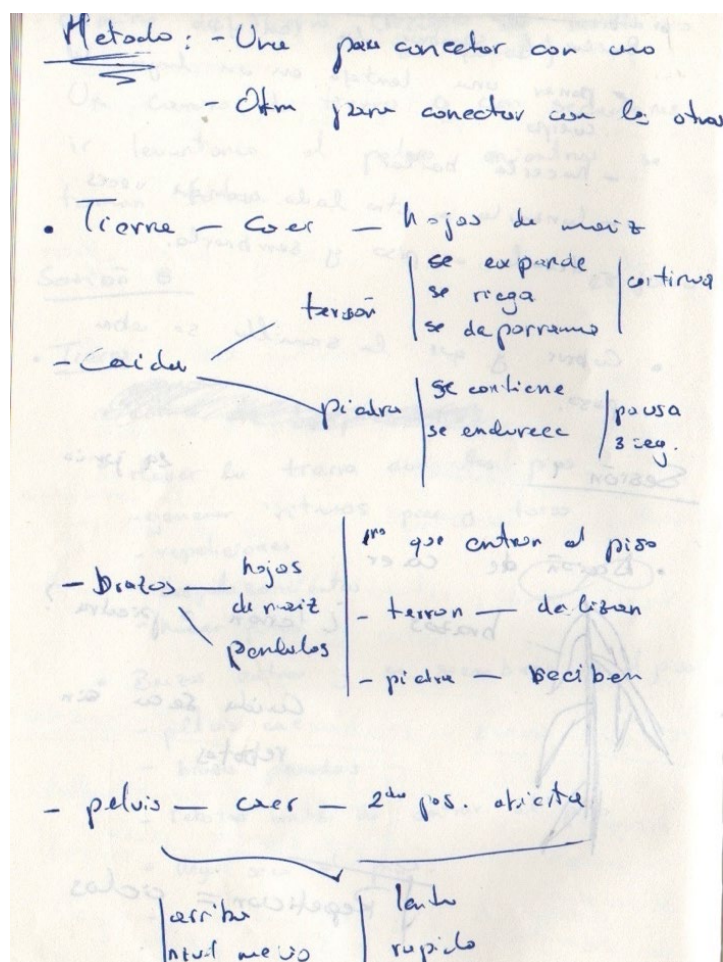 Metodo: - Una para conectar con uno
- Otra para conectar con los otros
• Tierra — Caer — hojas de maiz
se expande
terrón se riega continua
se deparrama
- Caida
piedra se contiene pausa
se endurece 3 seg.
- brazos — hojas de maiz
pendulos
1ro que entran al piso
- terron — deslizan
- piedra — reciben
- pelvis — caer — 2da pos. abierta
arriba lento
nivel medio rapido